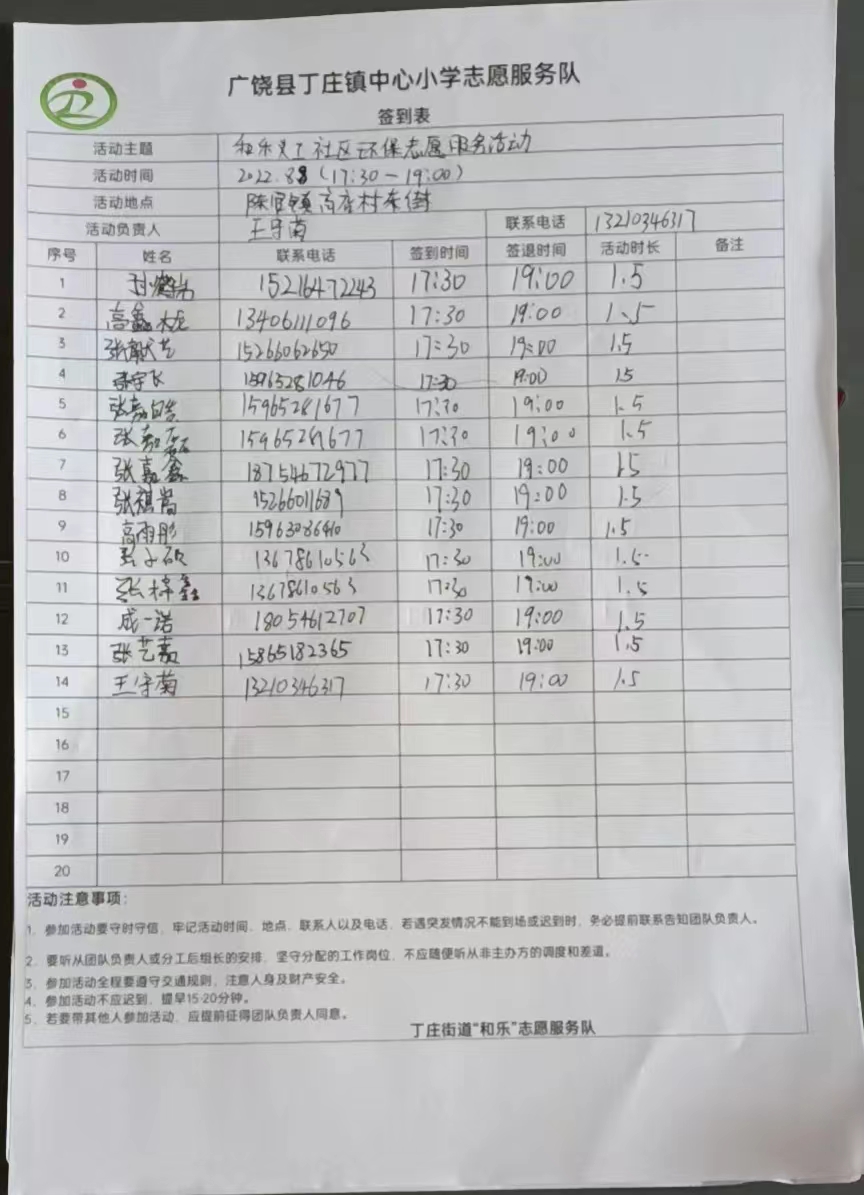 广饶县丁庄镇中心小学志愿服务队
签到表
活动主题 和乐义工社区环保志愿服务活动
活动时间 2022.8.8 (17:30-19:00)
活动地点 陈官镇高庄村东街
活动负责人 王守菊 联系电话 13210346317
序号 姓名 联系电话 签到时间 签退时间 活动时长 备注
1 15216472243 17:30 19:00 1.5
2 高鑫 13406111096 17:30 19:00 1.5
3 张 15266062650 17:30 19:00 1.5
4 15965281046 17:30 19:00 1.5
5 张嘉皓 15965281677 17:30 19:00 1.5
6 张嘉磊 15965281677 17:30 19:00 1.5
7 张嘉鑫 18754672977 17:30 19:00 1.5
8 张祺 15266011689 17:30 19:00 1.5
9 高雨彤 15963086410 17:30 19:00 1.5
10 张子硕 13678610563 17:30 19:00 1.5
11 张梓鑫 13678610563 17:30 19:00 1.5
12 成一诺 18054612707 17:30 19:00 1.5
13 张艺嘉 15865182365 17:30 19:00 1.5
14 王守菊 13210346317 17:30 19:00 1.5
15
16
17
18
19
20
活动注意事项：
1、参加活动要守时守信，牢记活动时间、地点、联系人以及电话，若遇突发情况不能到场或迟到时，务必提前联系告知团队负责人。
2、要听从团队负责人或分工后组长的安排，坚守分配的工作岗位，不应随便听从非主办方的调度和差遣。
3、参加活动全程要遵守交通规则，注意人身及财产安全。
4、参加活动不应迟到，提早15-20分钟。
5、若要带其他人参加活动，应提前征得团队负责人同意。
丁庄街道“和乐”志愿服务队